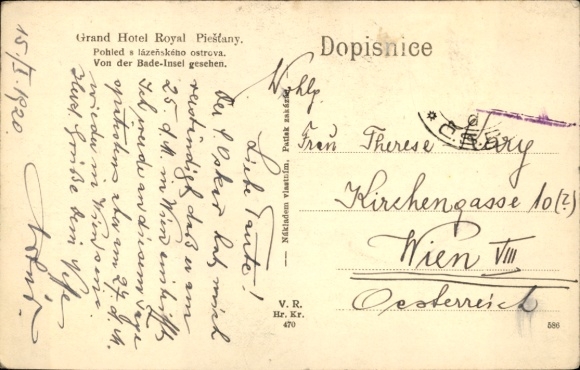 Grand Hotel Royal Piešťany.
Pohled s lázeňského ostrova.
Von der Bade-Insel gesehen.
Dopisnice
15/I. 1920
Liebe Tante!
Der Oskar hat mich
verständigt daß er am
25. d. M. in Wien eintrifft
Ich werde an diesem Tage
spätestens aber am 27. d. M.
wieder in Wien sein.
Herzl. Grüße Dein Neffe
Nákladem vlastním. Patisk zakázán.
V. R.
Hr. Kr.
470
Wohlg.
Frau Therese
Kirchengasse 10 (?)
Wien VIII
Oesterreich
586